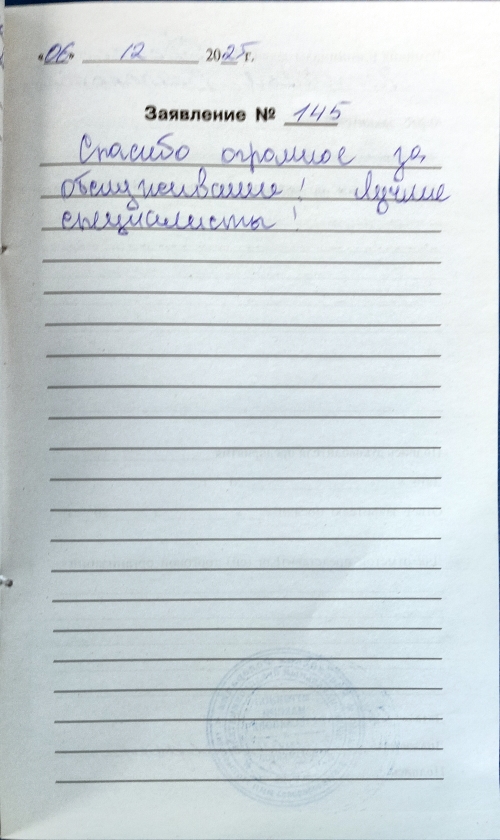 «06» 12 2025 г.
Заявление № 145
Спасибо огромное за
обслуживание! Лучшие
специалисты!